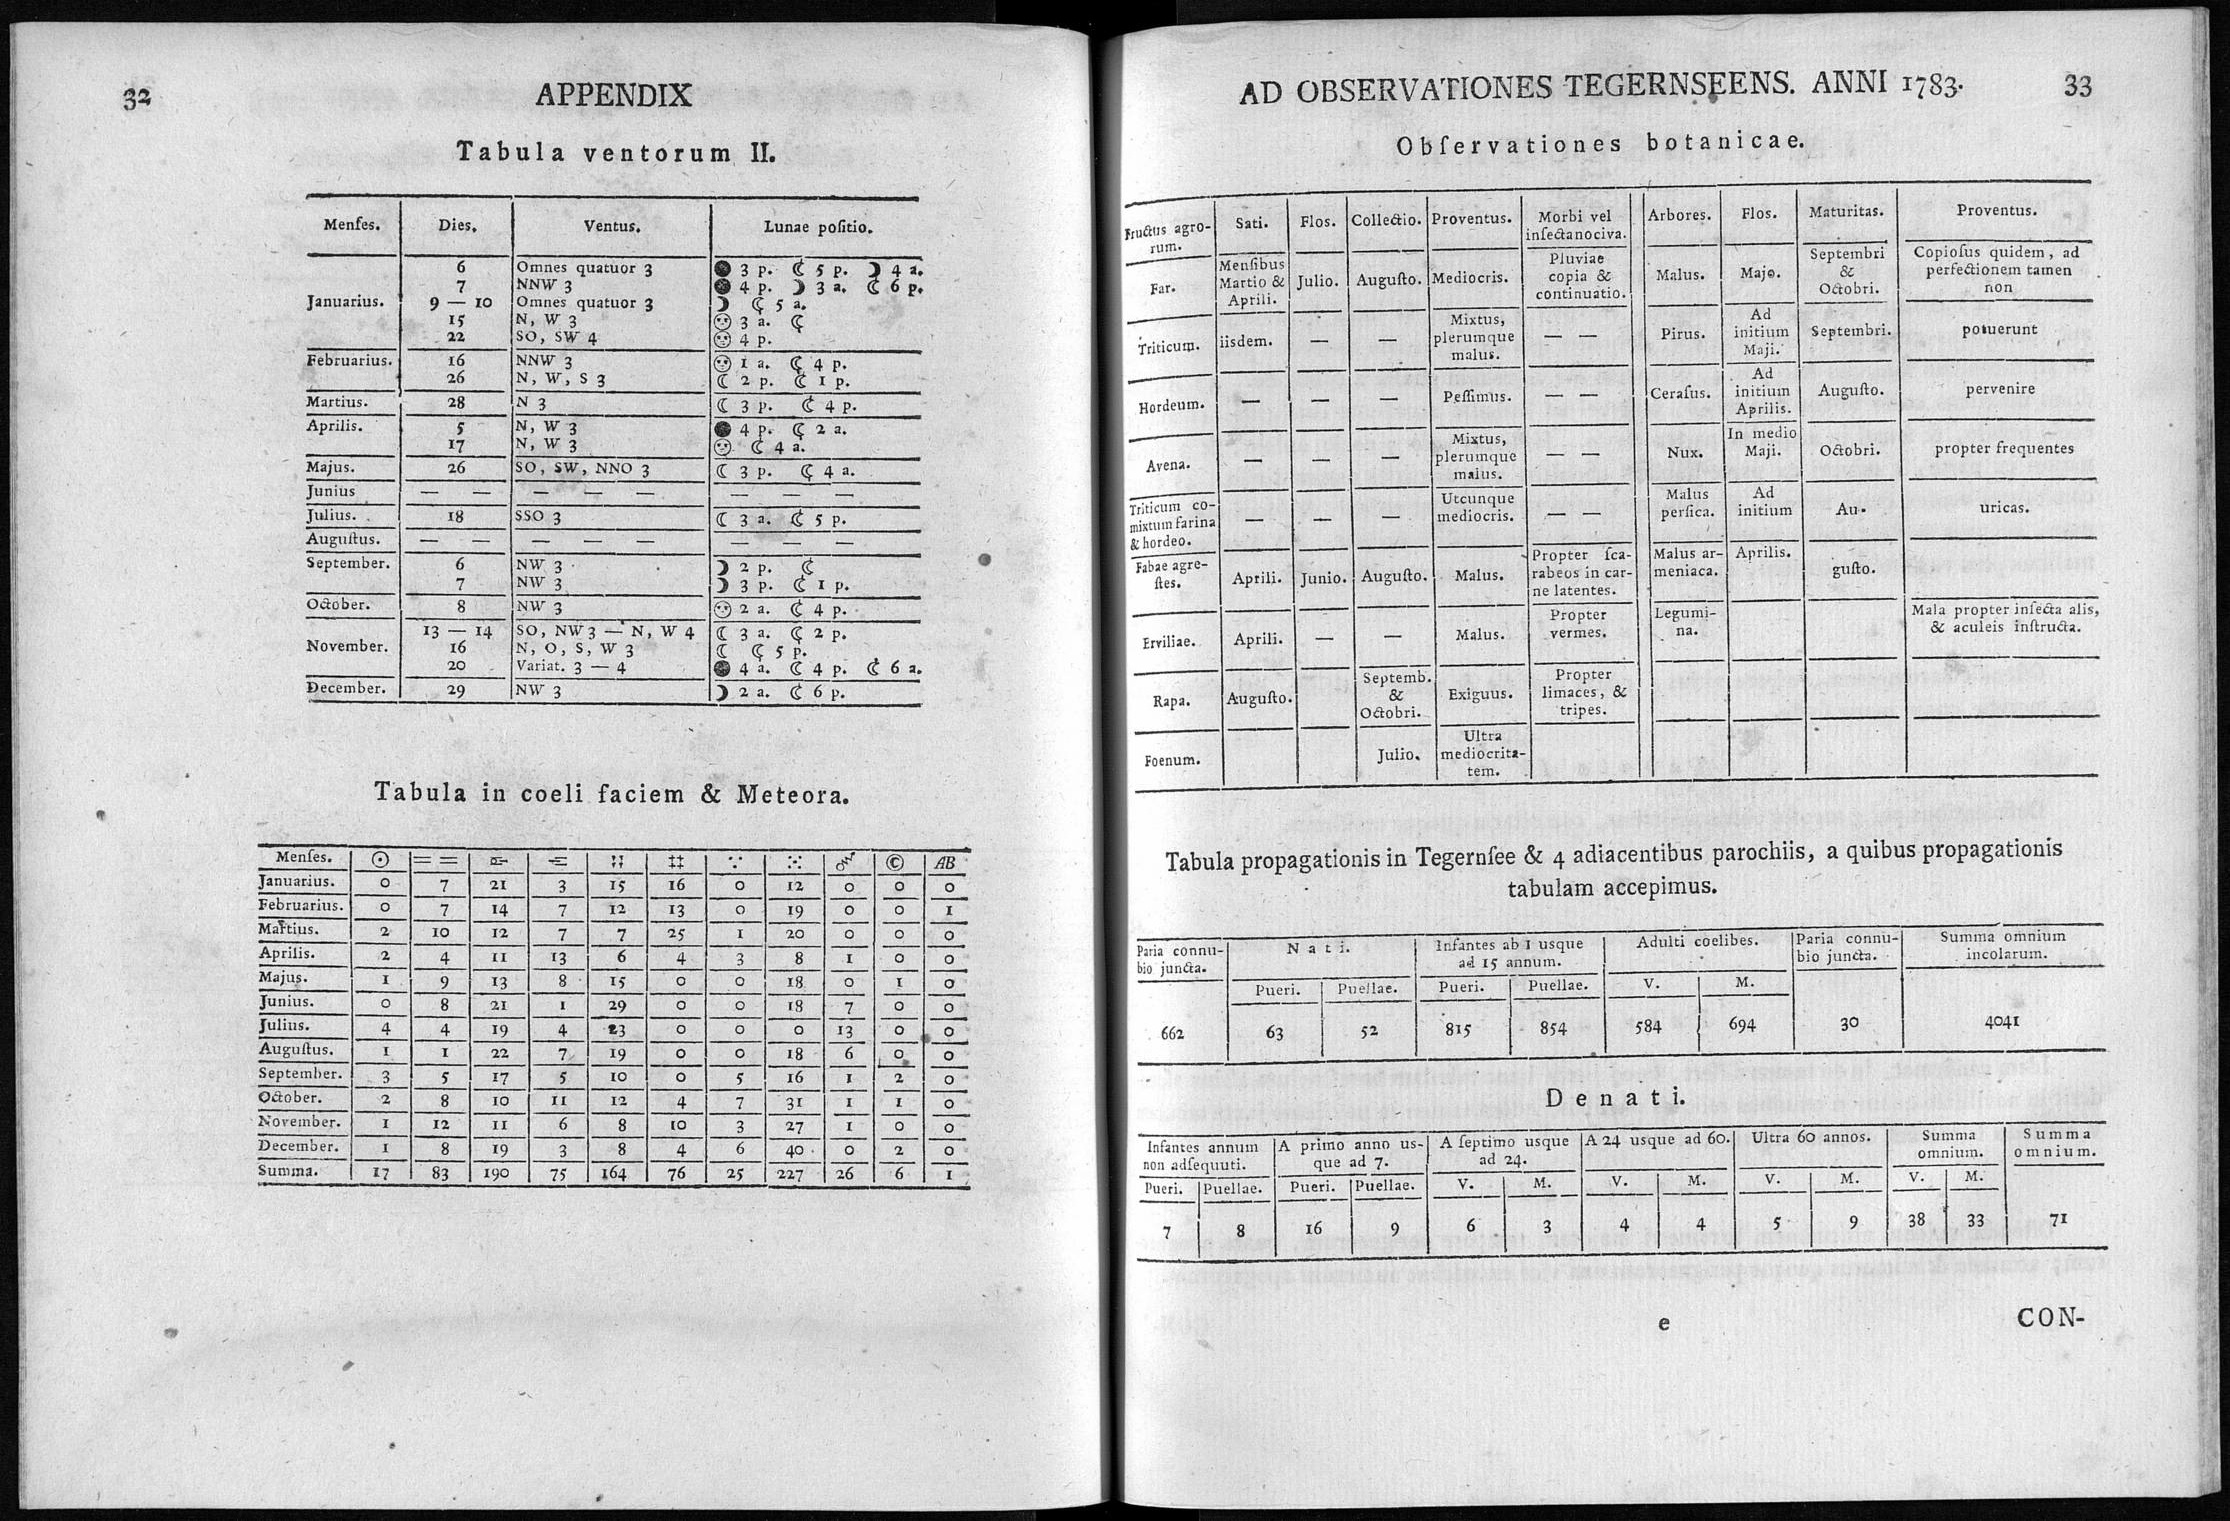 32
APPENDIX
Tabula ventorum II.
Menſes. Dies. Ventus. Lunae poſitio.
Januarius. 6 Omnes quatuor 3 3 p. 5 p. 4 a.
7 NNW 3 4 p. 3 a. 6 p.
9 — 10 Omnes quatuor 3 5 a.
15 N, W 3 3 a.
22 SO, SW 4 4 p.
Februarius. 16 NNW 3 1 a. 4 p.
26 N, W, S 3 2 p. 1 p.
Martius. 28 N 3 3 p. 4 p.
Aprilis. 5 N, W 3 4 p. 2 a.
17 N, W 3 4 a.
Majus. 26 SO, SW, NNO 3 3 p. 4 a.
Junius — — — — — — — —
Julius. 18 SSO 3 3 a. 5 p.
Auguſtus. — — — — — — — —
September. 6 NW 3 2 p.
7 NW 3 3 p. 1 p.
October. 8 NW 3 2 a. 4 p.
November. 13 — 14 SO, NW 3 — N, W 4 3 a. 2 p.
16 N, O, S, W 3 5 p.
20 Variat. 3 — 4 4 a. 4 p. 6 a.
December. 29 NW 3 2 a. 6 p.
Tabula in coeli faciem & Meteora.
Menſes. ☉ = = © AB
Januarius. 0 7 21 3 15 16 0 12 0 0 0
Februarius. 0 7 14 7 12 13 0 19 0 0 1
Martius. 2 10 12 7 7 25 1 20 0 0 0
Aprilis. 2 4 11 13 6 4 3 8 1 0 0
Majus. 1 9 13 8 15 0 0 18 0 1 0
Junius. 0 8 21 1 29 0 0 18 7 0 0
Julius. 4 4 19 4 23 0 0 0 13 0 0
Auguſtus. 1 1 22 7 19 0 0 18 6 0 0
September. 3 5 17 5 10 0 5 16 1 2 0
October. 2 8 10 11 12 4 7 31 1 1 0
November. 1 12 11 6 8 10 3 27 1 0 0
December. 1 8 19 3 8 4 6 40 0 2 0
Summa. 17 83 190 75 164 76 25 227 26 6 1
AD OBSERVATIONES TEGERNSEENS. ANNI 1783.
33
Obſervationes botanicae.
Fructus agrorum. Sati. Flos. Collectio. Proventus. Morbi vel inſecta nociva. Arbores. Flos. Maturitas. Proventus.
Far. Menſibus Martio & Aprili. Julio. Auguſto. Mediocris. Pluviae copia & continuatio. Malus. Majo. Septembri & Octobri. Copioſus quidem, ad perfectionem tamen non
Triticum. iisdem. — — Mixtus, plerumque malus. — — Pirus. Ad initium Maji. Septembri. potuerunt
Hordeum. — — — Peſſimus. — — Ceraſus. Ad initium Aprilis. Auguſto. pervenire
Avena. — — — Mixtus, plerumque malus. — — Nux. In medio Maji. Octobri. propter frequentes
Triticum co-mixtum farina & hordeo. — — — Utcunque mediocris. — — Malus perſica. Ad initium Au- uricas.
Fabae agre-ſtes. Aprili. Junio. Auguſto. Malus. Propter ſca-rabeos in car-ne latentes. Malus ar-meniaca. Aprilis. guſto.
Erviliae. Aprili. — — Malus. Propter vermes. Legumi-na. Mala propter inſecta alis, & aculeis inſtructa.
Rapa. Auguſto. Septemb. & Octobri. Exiguus. Propter limaces, & tripes.
Foenum. Julio. Ultra mediocrita-tem.
Tabula propagationis in Tegernſee & 4 adiacentibus parochiis, a quibus propagationis
tabulam accepimus.
Paria connu-bio juncta. Nati. Infantes ab 1 usque ad 15 annum. Adulti coelibes. Paria connu-bio juncta. Summa omnium incolarum.
Pueri. Puellae. Pueri. Puellae. V. M.
662 63 52 815 854 584 694 30 4041
Denati.
Infantes annum non adſequuti. A primo anno us-que ad 7. A ſeptimo usque ad 24. A 24 usque ad 60. Ultra 60 annos. Summa omnium. Summa omnium.
Pueri. Puellae. Pueri. Puellae. V. M. V. M. V. M. V. M.
7 8 16 9 6 3 4 4 5 9 38 33 71
e
CON-